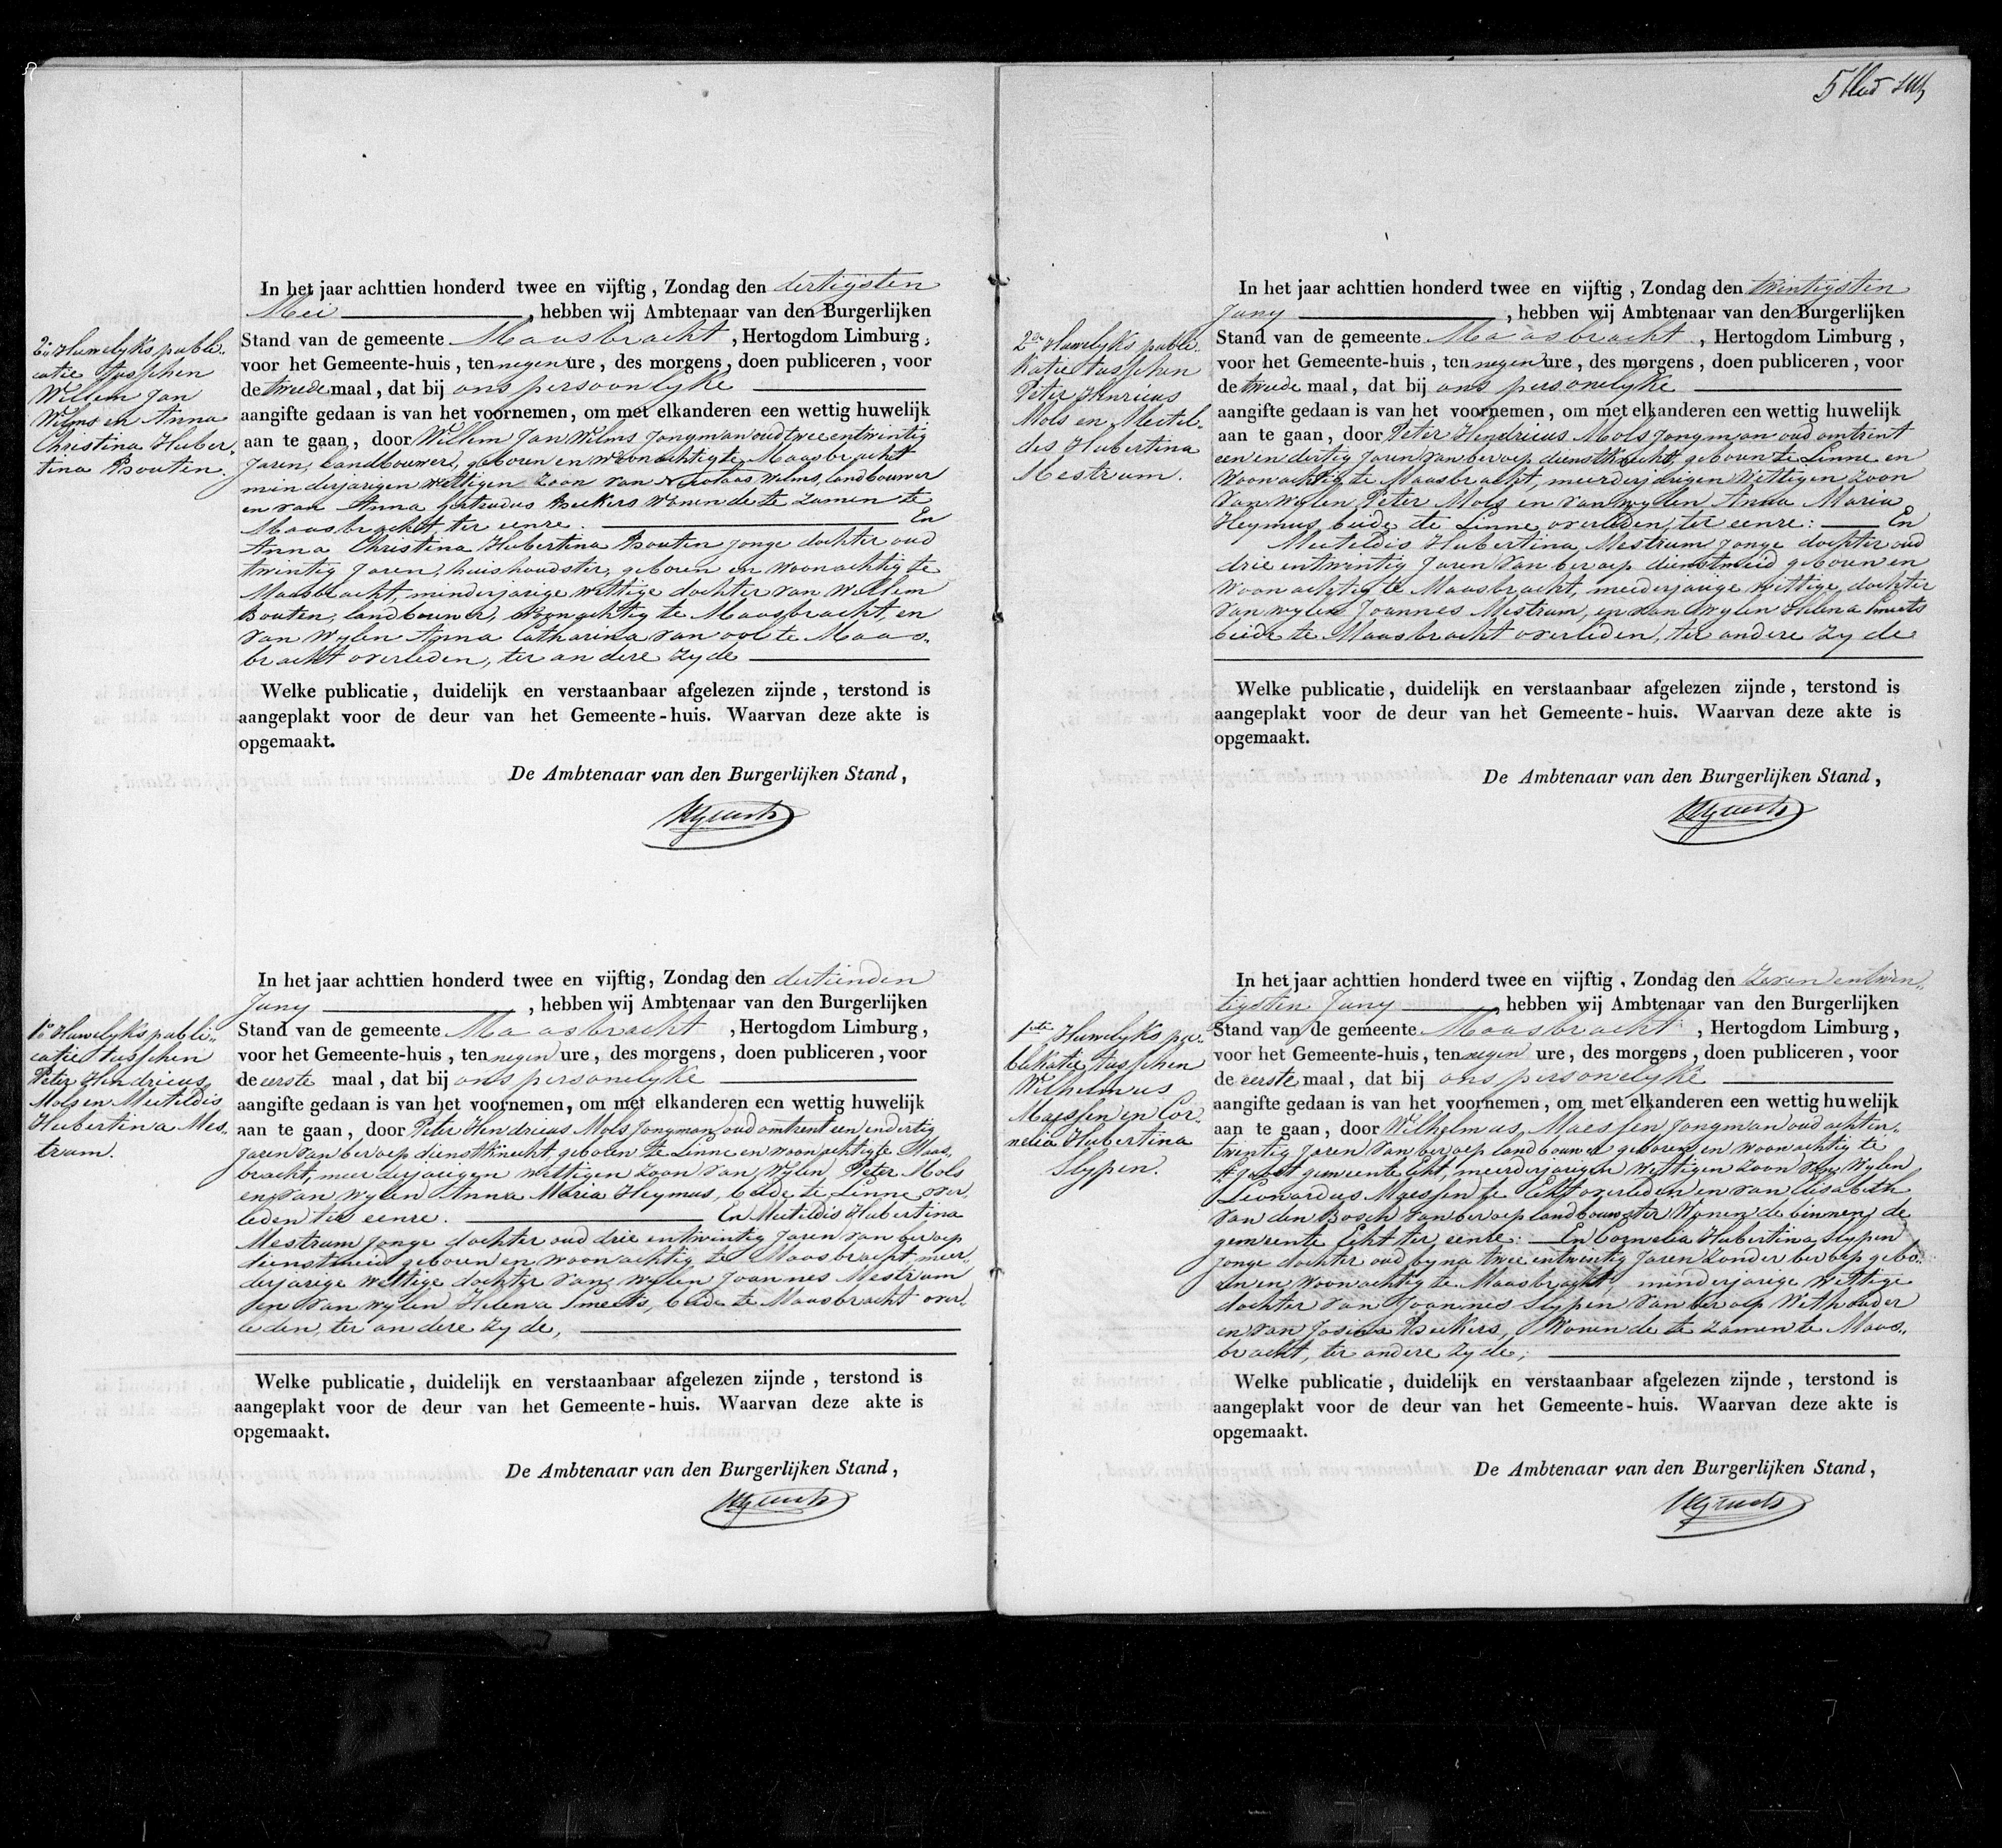 In het jaar achttien honderd twee en vijftig, Zondag den dertigsten
Mei, hebben wij Ambtenaar van den Burgerlijken
2e Huwelyks publi-
catie tusschen
Willem Jan
Wilms en Anna
Christina Huber-
tina Bouten.
Stand van de gemeente Maasbracht, Hertogdom Limburg,
voor het Gemeente-huis, ten negen ure, des morgens, doen publiceren, voor
de tweede maal, dat bij ons persoonlyke
aangifte gedaan is van het voornemen, om met elkanderen een wettig huwelijk
aan te gaan, door Willem Jan Wilms Jongman oud twee entwintig
Jaren, landbouwer, geboren en woonachtig te Maasbracht
minderjarigen wettigen zoon van Nicolaas Wilms, landbouwer
en van Anna Gertrudus Beekers wonende te zamen te
Maasbracht, ter eenre. En
Anna Christina Hubertina Bouten jonge dochter oud
twintig Jaren, huishoudster, geboren en woonachtig te
Maasbracht, minderjarige wettige dochter van Willem
Bouten, landbouwer, woonachtig te Maasbracht, en
van wylen Anna Catharina van ool te Maas-
bracht overleden, ter andere zyde
Welke publicatie, duidelijk en verstaanbaar afgelezen zijnde, terstond is
aangeplakt voor de deur van het Gemeente-huis. Waarvan deze akte is
opgemaakt.
De Ambtenaar van den Burgerlijken Stand,
In het jaar achttien honderd twee en vijftig, Zondag den dertienden
Juny, hebben wij Ambtenaar van den Burgerlijken
1e Huwelyks publi-
catie tusschen
Peter Hendricus
Mols en Meitildis
Hubertina Mes-
trum.
Stand van de gemeente Maasbracht, Hertogdom Limburg,
voor het Gemeente-huis, ten negen ure, des morgens, doen publiceren, voor
de eerste maal, dat bij ons personelyke
aangifte gedaan is van het voornemen, om met elkanderen een wettig huwelijk
aan te gaan, door Peter Hendricus Mols Jongman oud omtrent een en dertig
Jaren van beroep dienstknecht, geboren te Linne en woonachtig te Maas-
bracht, meerderjarigen wettigen zoon van wylen Peter Mols
en van wylen Anna Maria Heymus, beide te Linne over-
leden ter eenre. En Meitildis Hubertina
Mestrum Jonge dochter oud drie entwintig Jaren van beroep
dienstmeid geboren en woonachtig te Maasbracht meer-
derjarige wettige dochter van wylen Joannes Mestrum
en van wylen Helena Smeets, beide te Maasbracht over-
leden, ter andere zyde,
Welke publicatie, duidelijk en verstaanbaar afgelezen zijnde, terstond is
aangeplakt voor de deur van het Gemeente-huis. Waarvan deze akte is
opgemaakt.
De Ambtenaar van den Burgerlijken Stand,
5
In het jaar achttien honderd twee en vijftig, Zondag den twintigsten
Juny, hebben wij Ambtenaar van den Burgerlijken
2de Huwelyks publi-
katie tusschen
Peter Henricus
Mols en Meitil-
des Hubertina
Mestrum.
Stand van de gemeente Maasbracht, Hertogdom Limburg,
voor het Gemeente-huis, ten negen ure, des morgens, doen publiceren, voor
de tweede maal, dat bij ons personelyke
aangifte gedaan is van het voornemen, om met elkanderen een wettig huwelijk
aan te gaan, door Peter Hendricus Mols Jongman oud omtrent
een en dertig Jaren van beroep dienstknecht, geboren te Linne en
woonachtig te Maasbracht, meerderjarigen wettigen zoon
van wylen Peter Mols en van wylen Anna Maria
Heymus beide te Linne overleden, ter eenre: En
Meitildis Hubertina Mestrum Jonge dochter oud
drie entwintig Jaren van beroep dienstmeid geboren en
woonachtig te Maasbracht, meerderjarige wettige dochter
van wylen Joannes Mestrum, en van wylen Helena Smeets
beide te Maasbracht overleden, ter andere zyde
Welke publicatie, duidelijk en verstaanbaar afgelezen zijnde, terstond is
aangeplakt voor de deur van het Gemeente-huis. Waarvan deze akte is
opgemaakt.
De Ambtenaar van den Burgerlijken Stand,
In het jaar achttien honderd twee en vijftig, Zondag den zeven entwin-
tigsten Juny, hebben wij Ambtenaar van den Burgerlijken
1ste Huwelyks pu-
blikatie tusschen
Wilhelmus
Maessen en Cor-
nelia Hubertina
Slypen.
Stand van de gemeente Maasbracht, Hertogdom Limburg,
voor het Gemeente-huis, ten negen ure, des morgens, doen publiceren, voor
de eerste maal, dat bij ons personelyke
aangifte gedaan is van het voornemen, om met elkanderen een wettig huwelijk
aan te gaan, door Wilhelmus Maessen Jongman oud acht en-
twintig Jaren van beroep landbouwer geboren en woonachtig te
gemeente Echt, meerderjarigen wettigen zoon van wylen
Leonardus Maessen te Echt overleden en van Elisabeth
van den Bosch van beroep landbouwster wonende binnen de
gemeente Echt ter eenre: En Cornelia Hubertina Slypen
Jonge dochter oud byna twee entwintig Jaren zonder beroep gebo-
ren en woonachtig te Maasbracht, minderjarige wettige
dochter van Joannes Slypen van beroep Wethouder
en van Josina Beekers, wonende te zamen te Maas-
bracht, ter andere zyde;
Welke publicatie, duidelijk en verstaanbaar afgelezen zijnde, terstond is
aangeplakt voor de deur van het Gemeente-huis. Waarvan deze akte is
opgemaakt.
De Ambtenaar van den Burgerlijken Stand,